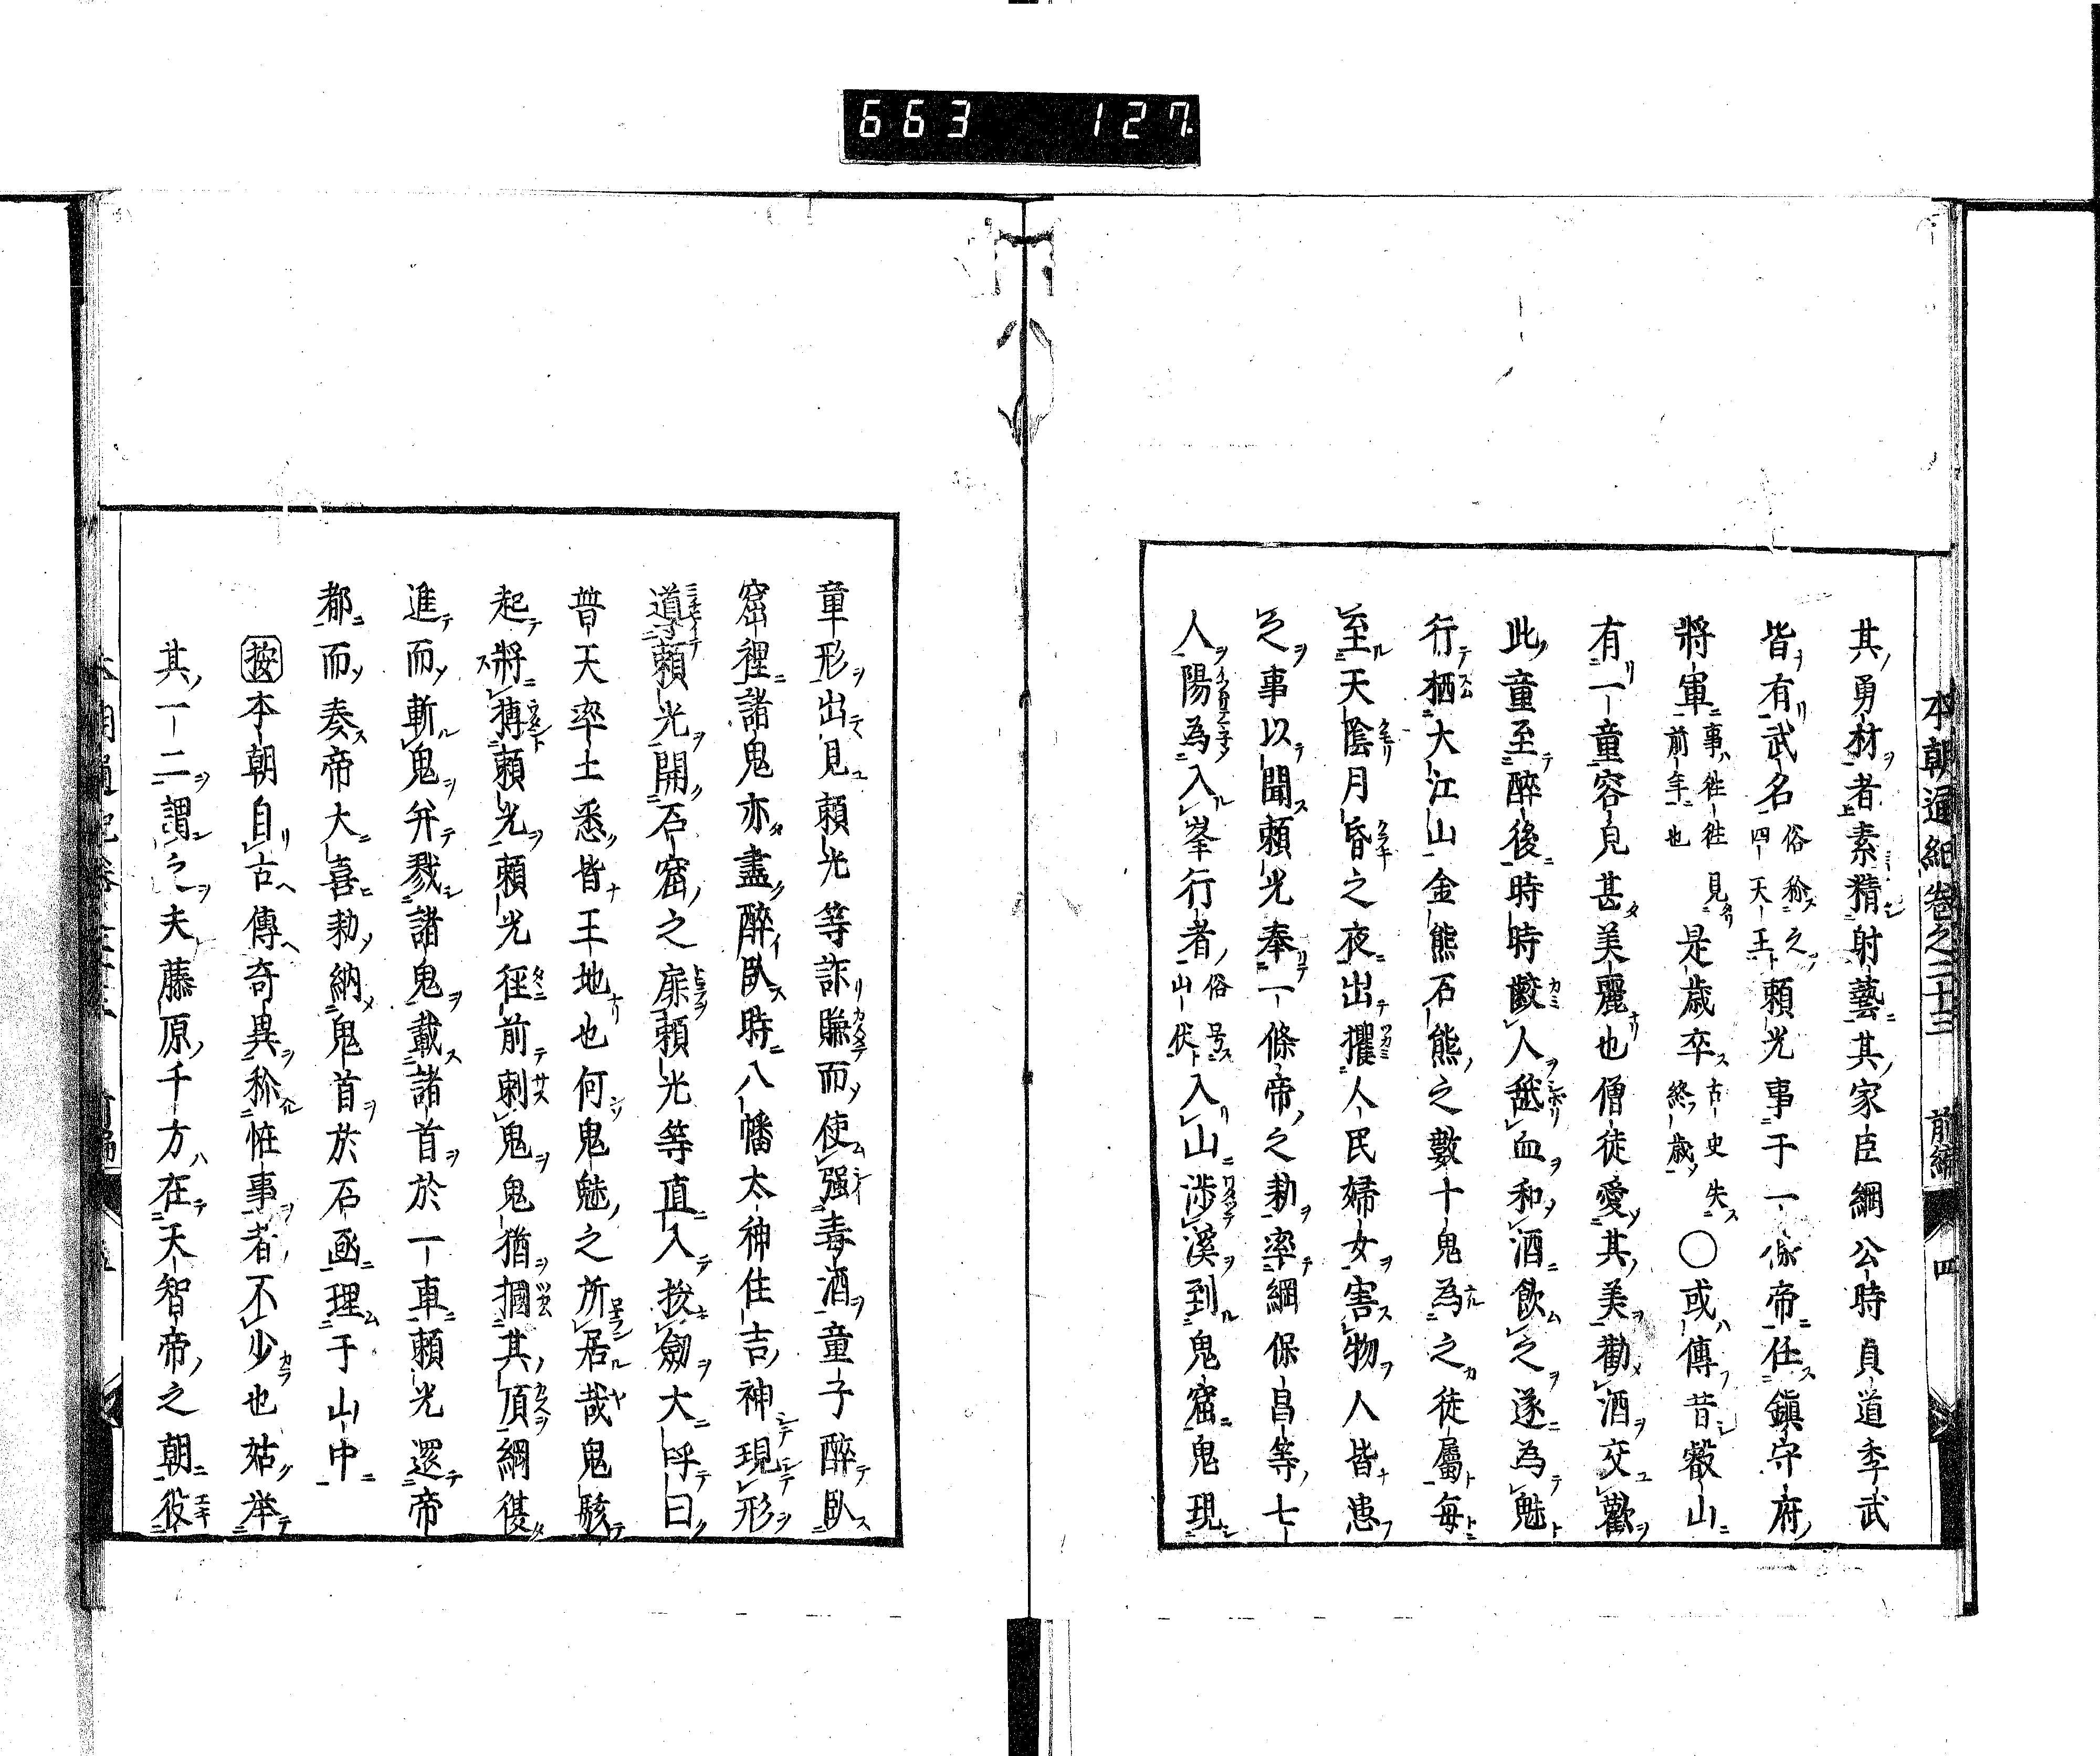 663 127
本朝通紀卷之二十三 前編 四
其勇材者素精射藝其家臣綱公時貞道季武
皆有武名俗称之四天王頼光事于一條帝任鎮守府
將軍事徃徃見前年也是歳卒古史失終歳〇或傳昔叡山
有一童容見甚美麗也僧徒愛其美勸酒交歡
此童至醉後時時齩人䑛血和酒飲之遂為魅
行栖大江山金熊石熊之數十鬼為之徒屬每
至天陰月昏之夜出攫人民婦女害物人皆患
之事以聞頼光奉一條帝之勅率綱保昌等七
人陽為入峯行者俗号山伏入山渉溪到鬼窟鬼現
童形出見頼光等詐賺而使强毒酒童子醉臥
窟裡諸鬼亦盡醉臥時八幡太神住吉神現形
導頼光開石窟之扉頼光等直入拔劔大呼曰
普天率土悉皆王地也何鬼魅之所居哉鬼駭
起將搏頼光頼光徑前刺鬼鬼猶摑其頂綱復
進而斬鬼并戮諸鬼載諸首於一車頼光還帝
都而奏帝大喜勅納鬼首於石函埋于山中
按本朝自古傳奇異称恠事者不少也姑举
其一二謂之夫藤原千方在天智帝之朝役